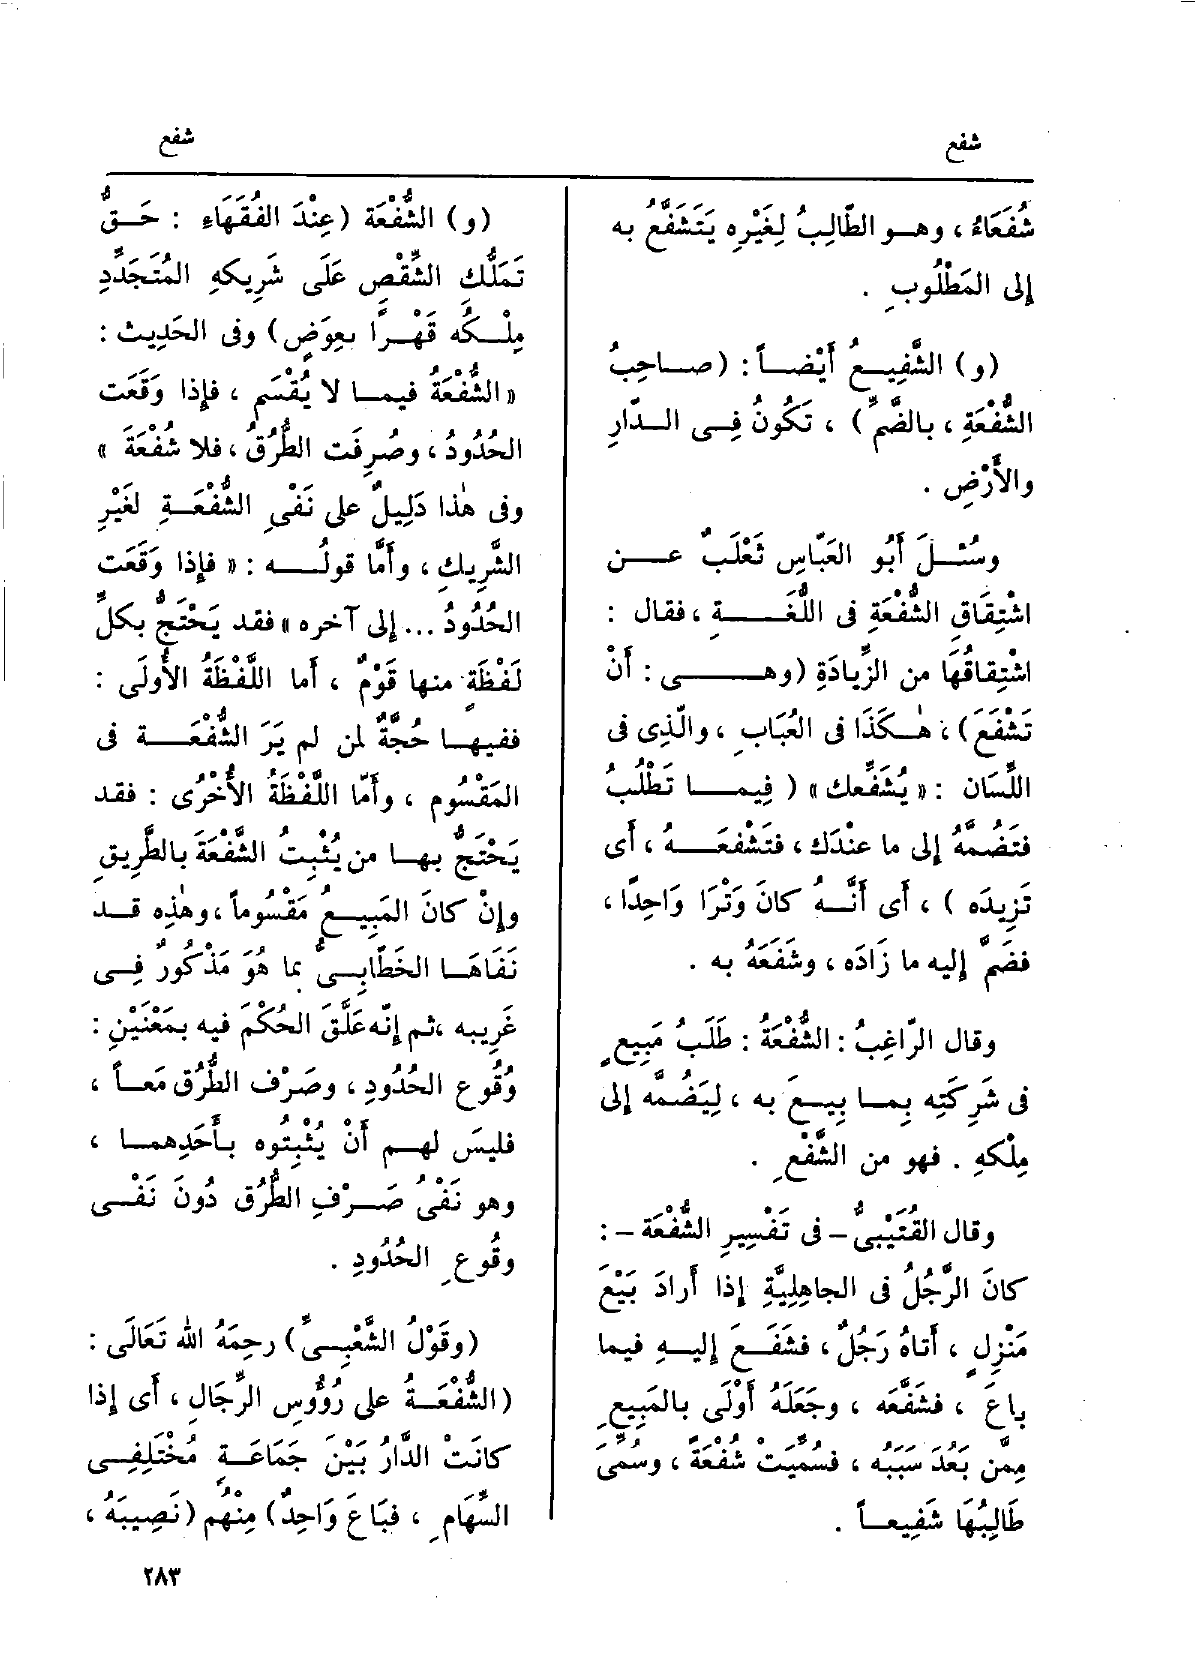 شفع
شفع
شُفَعَاءُ ، وهـو الطّالِبُ لِغَيْرِه يَتَشَفَّعُ به
إلى المَطْلُوبِ .
(و) الشَّفِيـعُ أَيْضـاً: (صـاحِبُ
الشُّفْعَةِ ، بالضَّمِّ) ، تَكُونُ فِـى الـدّارِ
والأَرْضِ .
وسُئـِلَ أَبُو العَبّاسِ ثَعْلَبٌ عـن
اشْتِقَاقِ الشُّفْعَةِ فى اللُّغَـــةِ ، فقال :
اشْتِقاقُهَا من الزِّيادَةِ (وهــى : أَنْ
تَشْفَعَ) ، هٰـكَذَا فى العُبَابِ ، والّذِى فى
اللِّسَان : « يُشَفِّعك » ( فِيمـا تَطْلُبُ
فتَضُمَّهُ إلى ما عنْدَك ، فتَشْفعَـهُ ، أَى
تزِيدَه ) ، أَى أَنَّـهُ كانَ وَتْرًا وَاحِدًا ،
فضَمَّ إليه ما زَادَه ، وشَفَعَهُ به .
وقال الرّاغِبُ : الشُّفْعَةُ : طَلَبُ مَبِيعٍ
فى شَرِكَتِه بِمـا بِيـعَ به ، لِيَضُمَّه إلى
مِلْكهِ . فهو من الشَّفْعِ .
وقال القُتَيْبىُّ – فى تَفْسِيرِ الشُّفْعَة – :
كانَ الرَّجُلُ فى الجاهِلِيَّةِ إذا أَرادَ بَيْعَ
مَنْزِلٍ ، أَتاهُ رَجُلٌ ، فشَفَـعَ إِليـهِ فيما
باعَ ، فشَفَّعَه ، وجَعَلَهُ أَوْلَى بالمَبِيعِ
مِمَّن بَعُدَ سَبَبُه ، فسُمِّيَتْ شُفْعَةً ، وسُمِّىَ
طَالِبُهَا شَفِيعـاً .
(و) الشُّفْعَة (عِنْدَ الفُقَهَاءِ : حَـقُّ
تَمَلُّكِ الشِّقْصِ عَلَى شَرِيكهِ المُتَجَدِّدِ
مِلْـكُه قَهْـرًا بعِوَضٍ) وفى الحَدِيث :
« الشُّفْعَةُ فيمـا لا يُقْسَم ، فإذا وَقَعَت
الحُدُودُ ، وصُرِفَت الطُّرُقُ ، فلا شُفْعَةَ »
وفى هٰذا دَلِيلٌ على نَفْىِ الشُّفْعَـةِ لغَيْرِ
الشَّرِيكِ ، وأَمَّا قولُـــه : « فإذا وَقَعَت
الحُدُودُ ... إلى آخره » فقد يَحْتَجُّ بكلِّ
لَفْظَةٍ منها قَوْمٌ ، أَما اللَّفْظَةُ الأُولَى :
ففيهـا حُجَّةٌ لمن لم يَرَ الشُّفْعَـــة فى
المَقْسُوم ، وأَمّا اللَّفْظَةُ الأُخْرَى : فقد
يَحْتَجُّ بهـا من يُثْبِتُ الشُّفْعَةَ بالطَّرِيقِ
وإنْ كانَ المَبِيـعُ مَقْسُوماً ، وهٰذِه قـد
نَفَاهَـا الخَطّابِـىُّ بما هُوَ مَذْكُورٌ فِـى
غَرِيبه ، ثم إنّه عَلَّقَ الحُكْمَ فيه بمَعْنَيَيْنِ :
وُقُوعِ الحُدُودِ ، وصَرْفِ الطُّرُقِ مَعـاً ،
فليسَ لهـم أَنْ يُثْبِتُوه بأَحَدِهمـا ،
وهو نَفْىُ صَـرْفِ الطُّرُقِ دُونَ نَفْـى
وقُوعِ الحُدُودِ .
(وقَوْلُ الشَّعْبِـىِّ) رحِمَهُ الله تَعَالَى :
(الشُّفْعَـةُ على رُؤُوسِ الرِّجَالِ ، أَى إذا
كانَتْ الدّارُ بَيْنَ جَمَاعَـةٍ مُخْتَلِفِـى
السِّهَامِ ، فبَاعَ وَاحِدٌ) مِنْهُم (نَصِيبَهُ ،
٢٨٣